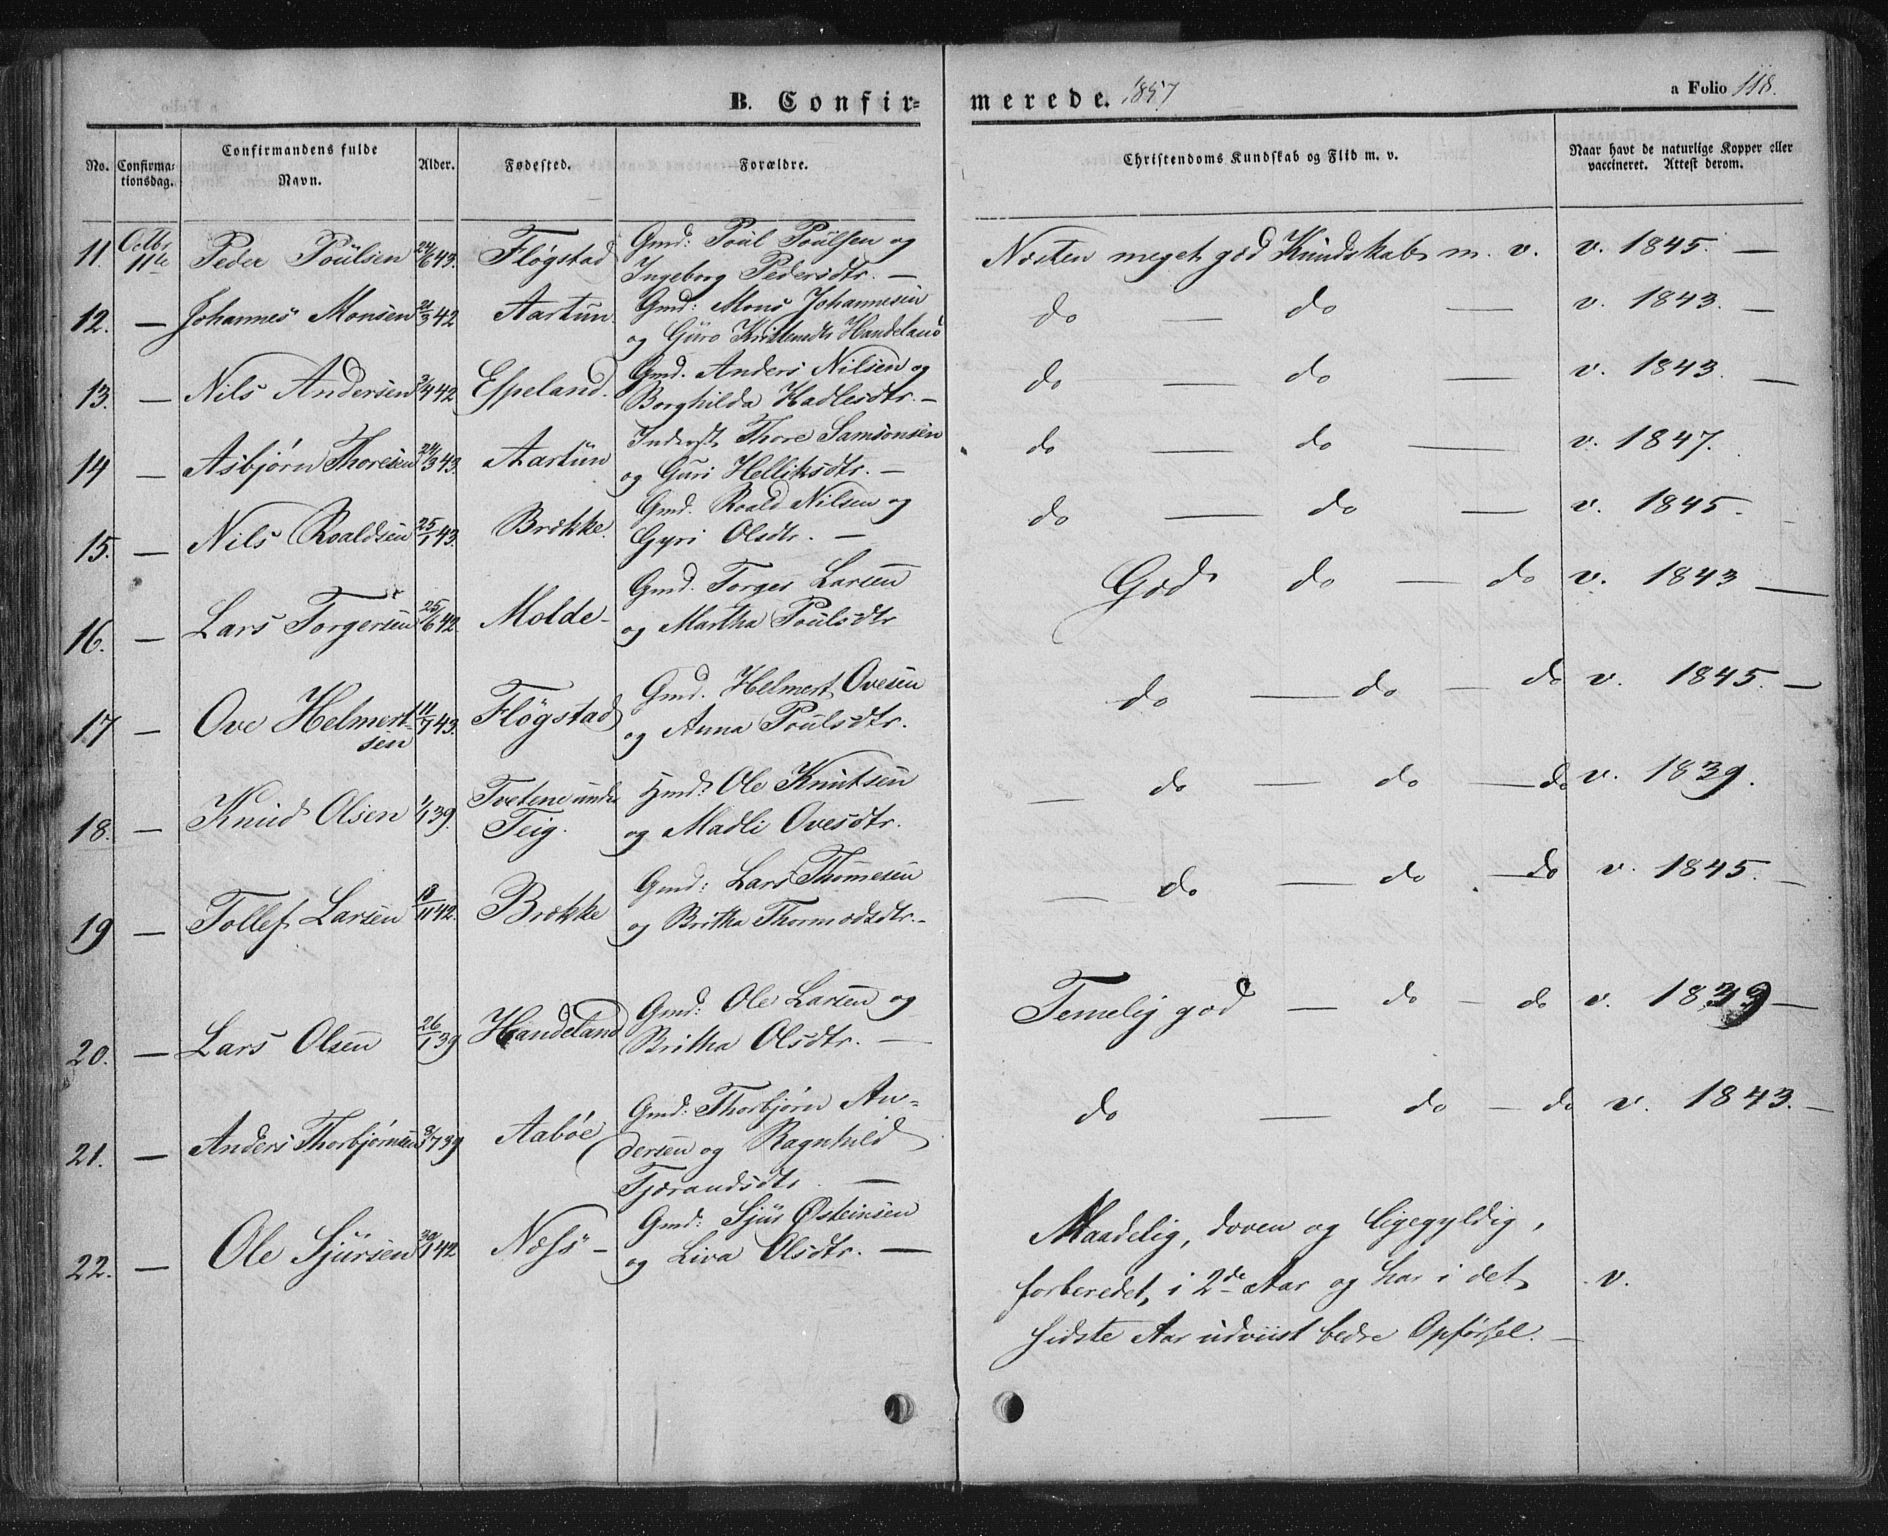 B. Confir= merede. 1857 a Folio 118.
No. Confirma-tionsdag. Confirmandens fulde Navn. Alder. Fødested. Forældre. Christendoms Kundskab og Flid m. v. Naar havt de naturlige Kopper eller vaccineret. Attest derom.
11. Octbr 11te Peder Poulsen 24/6 43. Fløgstad Gmd: Poul Poulsen og Næsten meget god Kundskab m. v. v. 1845. —
Ingeborg Pedersdtr. —
12. — Johannes Monsen 42 Aartun Gmd: Mons Johannesen do — do — v. 1843. —
og Guro Handeland
13. — Nils Andersen 3/4 42 Espeland. Gmd. Anders Nilsen og do — do — v. 1843. —
Borghilda Hadlesdtr. —
14 — Asbjørn Thoresen 24/3 43. Aartun Inderst Thore Samsonsen do — do — v. 1847.
og Guri Helliksdtr. —
15. — Nils Roaldsen 25/1 43. Brække. Gmd. Roald Nilsen og do — do — v. 1845. —
Gyri Olsdtr. —
16. — Lars Torgersen 25/6 42 Molde — Gmd. Torges Larsen God do — do v. 1843 —
og Martha Poulsdtr
17 — Ove Helmert- 43. Fløgstad Gmd. Helmert Ovesen do — do — do v. 1845. —
sen og Anna Poulsdtr.
18. — Knud Olsen 1/1 39. Tvetene under Hmd: Ole Knutsen — do — do — do v. 1839.
Teig. og Madli Ovesdtr.
19 — Tollef Larsen 18/11 42. Brække Gmd: Lars Thomesen — do — do — do v. 1845. —
og Britha Thormodsdtr. —
20. — Lars Olsen 26/1 39 Handeland Gmd: Ole Larsen og Temelig god — do — do v. 1839 —
Britha Olsdtr. —
21. — Anders Thorbjørnsen 39 Aabøe Gmd: Thorbjørn An- do — do — do v. 1843. —
dersen og Ragnhild
Tjerandsdtr. —
22. — Ole Sjursen 30/1 42 Næss — Gmd: Sjur Østeinsen Maadelig, doven og ligegyldig,
og Liva Olsdtr. — forberedet, i 2de Aar og har i det v.
sidste Aar udviist bedre Opførsel. —